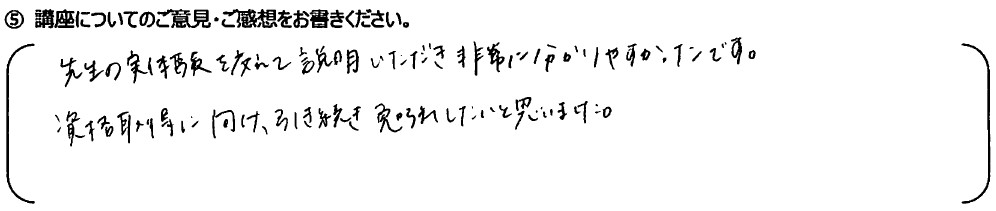 ⑤ 講座についてのご意見・ご感想をお書きください。
先生の実体験を交えて説明いただき非常に分かりやすかったです。
資格取得に向け、引き続き勉強したいと思いました。